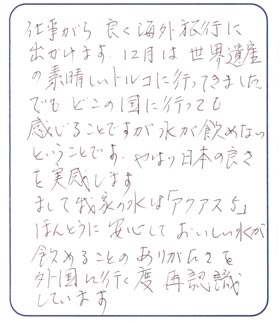 仕事がら 良く海外旅行に
出かけます。12月は世界遺産
の素晴しいトルコに行ってきました
でも どこの国に行っても
感じることですが水が飲めない
ということです。やはり日本の良さ
を実感します
まして我家の水は「アクアス5」
ほんとうに安心しておいしい水が
飲めることのありがたさを
外国に行く度 再認識
しています